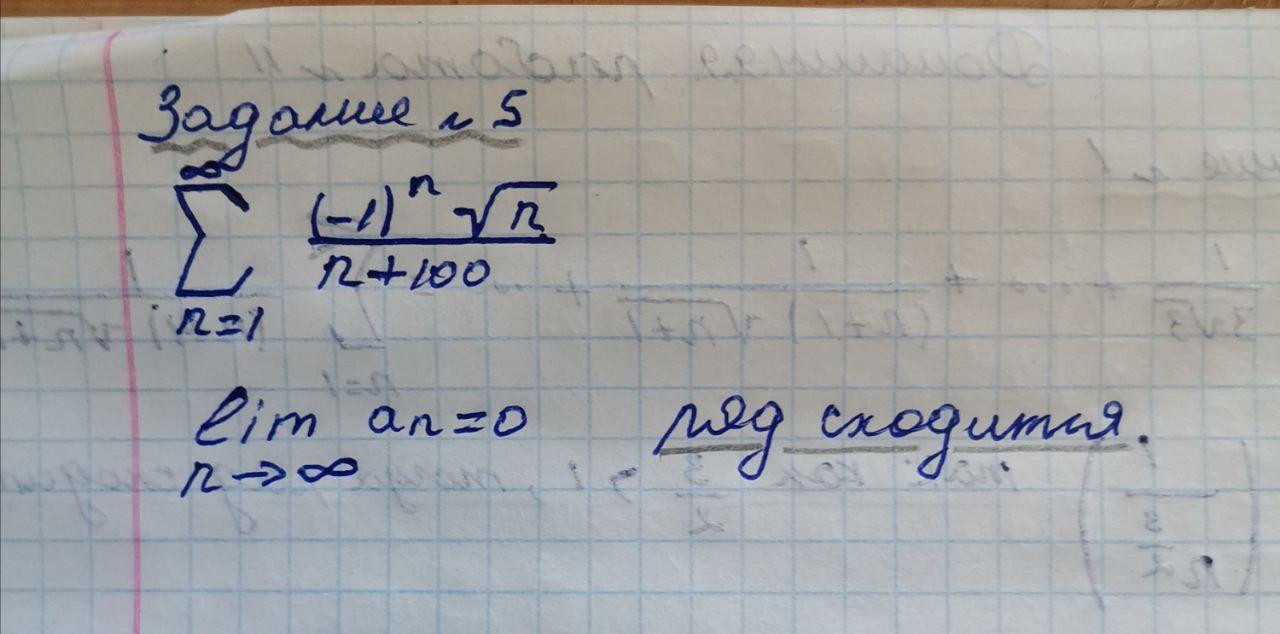 Задание № 5
∞
∑ (-1)^n √n / n+100
n=1
lim an=0 ряд сходится.
n→∞